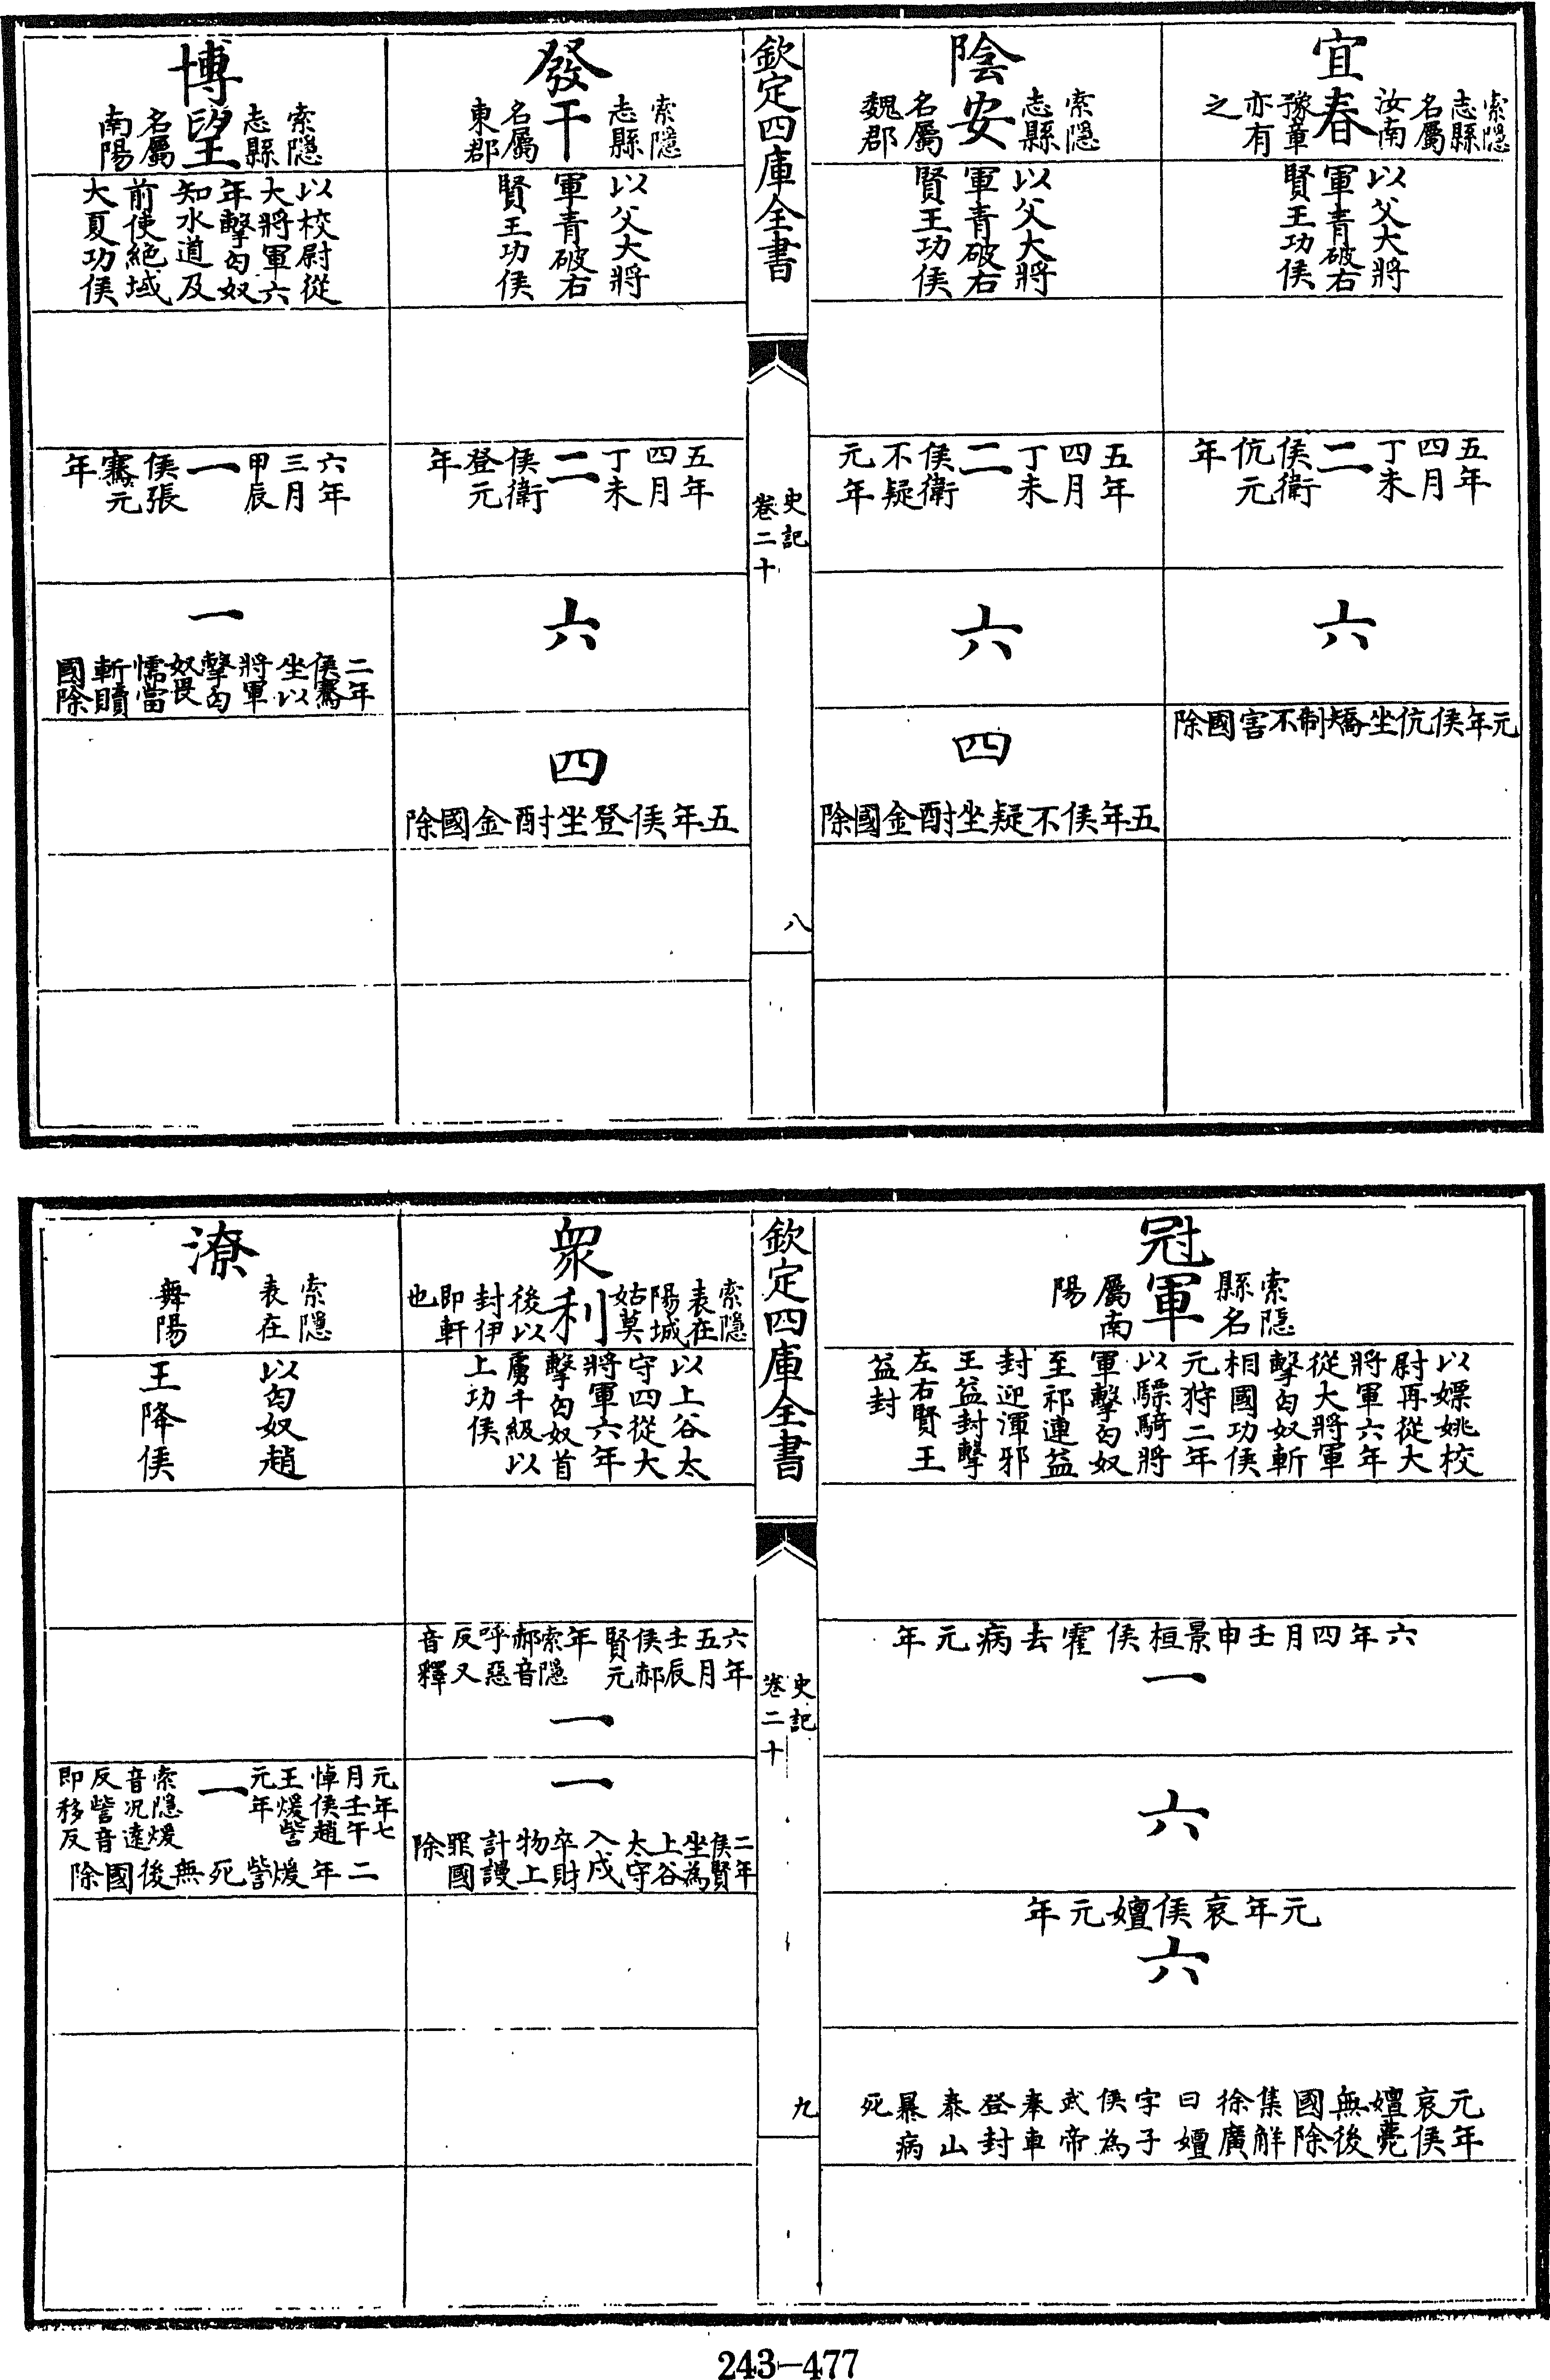 宜春
索隱志縣名屬汝南豫章亦有之
以父大將
軍青破右
賢王功侯
五年四月丁未
二
侯衛伉元年
六
元年侯伉坐矯制不害國除
陰安
索隱志縣名屬魏郡
以父大將
軍青破右
賢王功侯
五年四月丁未
二
侯衛不疑元年
六
四
五年侯不疑坐酎金國除
欽定四庫全書
史記
卷二十
八
發干
索隱志縣名屬東郡
以父大將
軍青破右
賢王功侯
五年四月丁未
二
侯衛登元年
六
四
五年侯登坐酎金國除
博望
索隱志縣名屬南陽
以校尉從
大將軍六
年擊匈奴
知水道及
前使絕域
大夏功侯
六年三月甲辰
一
侯張騫元年
一
二年侯騫坐以將軍擊匈奴畏懦當斬贖國除
冠軍
索隱縣名屬南陽
以嫖姚校
尉再從大
將軍六年
從大將軍
擊匈奴斬
相國功侯
元狩二年
以驃騎將
軍擊匈奴
至祁連益
封迎渾邪
王益封擊
左右賢王
益封
六年四月壬申景桓侯霍去病元年
一
六
元年哀侯嬗元年
六
元年哀侯嬗薨無後國除集解徐廣曰嬗字子侯為武帝奉車登封泰山暴病死
欽定四庫全書
史記
卷二十
九
眾利
索隱表在陽城姑莫後以封伊即軒也
以上谷太
守四從大
將軍六年
擊匈奴首
虜千級以
上功侯
六年五月壬辰侯郝賢元年
索隱郝音呼惡反又音釋
一
一
二年侯賢坐為上谷太守入戍卒財物上計謾罪國除
潦
索隱表在舞陽
以匈奴趙
王降侯
元年七月壬午悼侯趙王煖訾元年
一
索隱煖音況遠反訾音即移反
二年煖訾死無後國除
243-477